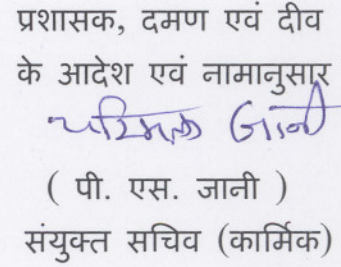 प्रशासक, दमण एवं दीव
के आदेश एवं नामानुसार
जानी
( पी. एस. जानी )
संयुक्त सचिव (कार्मिक)